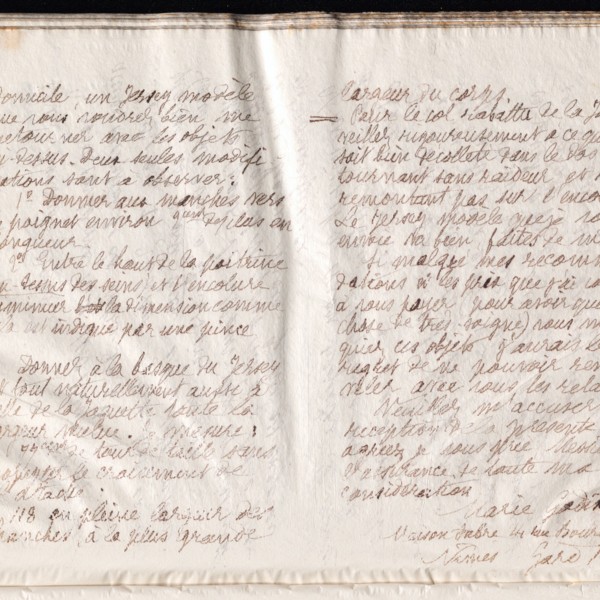 domicile, un Jersey modèle
que vous voudrez bien me
retourner avec les objets
ci-dessus. Deux seules modifi
cations sont à observer:
1° Donner aux manches vers
le poignet environ de plus en
longueur.
2° Entre le haut de la poitrine
au dessus des seins et l'encolure
diminuer la dimension comme
indiqué par une pince
Donner à la basque du Jersey
tout naturellement aussi à
celle de la jaquette toute la
largeur voulue. mesure:
de tour de taille sans
le croisement de
118 en pleine largeur des
hanches, à la plus grande
largeur du corps.
Pour le col rabattu de la Ja
veiller rigoureusement à ce qu
soit bien décolleté dans le dos
tournant sans raideur et n
remontant pas sur l'enco
Le Jersey modèle que je vo
envoie va bien faites de m
Si malgré mes recomm
dations et les prix que j'ai
à vous payer pour avoir que
chose de très soigné, vous m
ces objets j'aurais le
regret de ne pouvoir ren
veler avec vous les rela
Veuillez m'accuser
réception de la présente
agréez je vous prie Messie
l'assurance de toute ma
considération
Marie
Maison Fabre 41 rue
Nîmes Gard